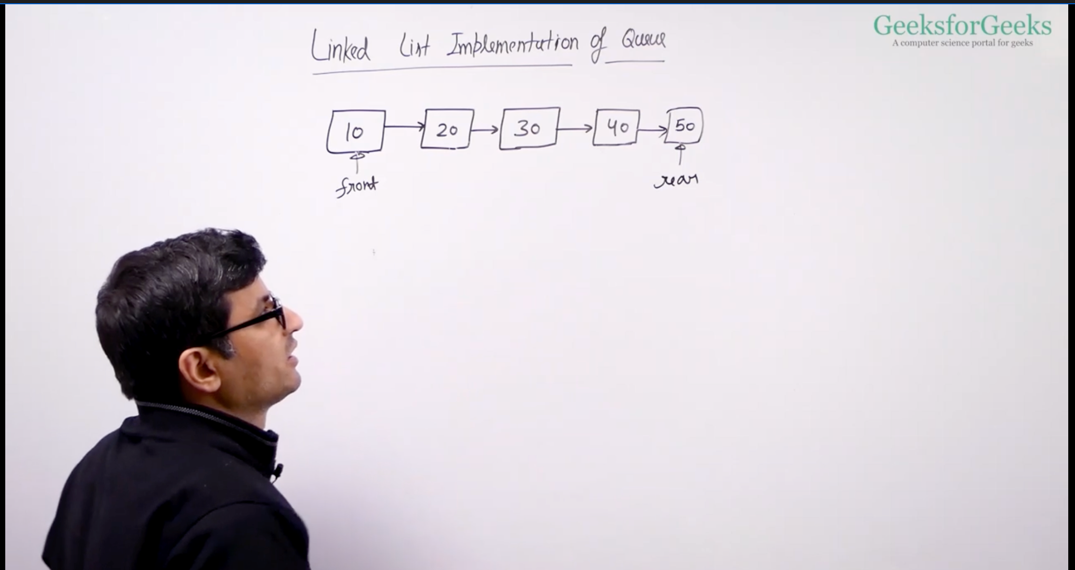 GeeksforGeeks
A computer science portal for geeks
Linked List Implementation of Queue
10 20 30 40 50
front rear